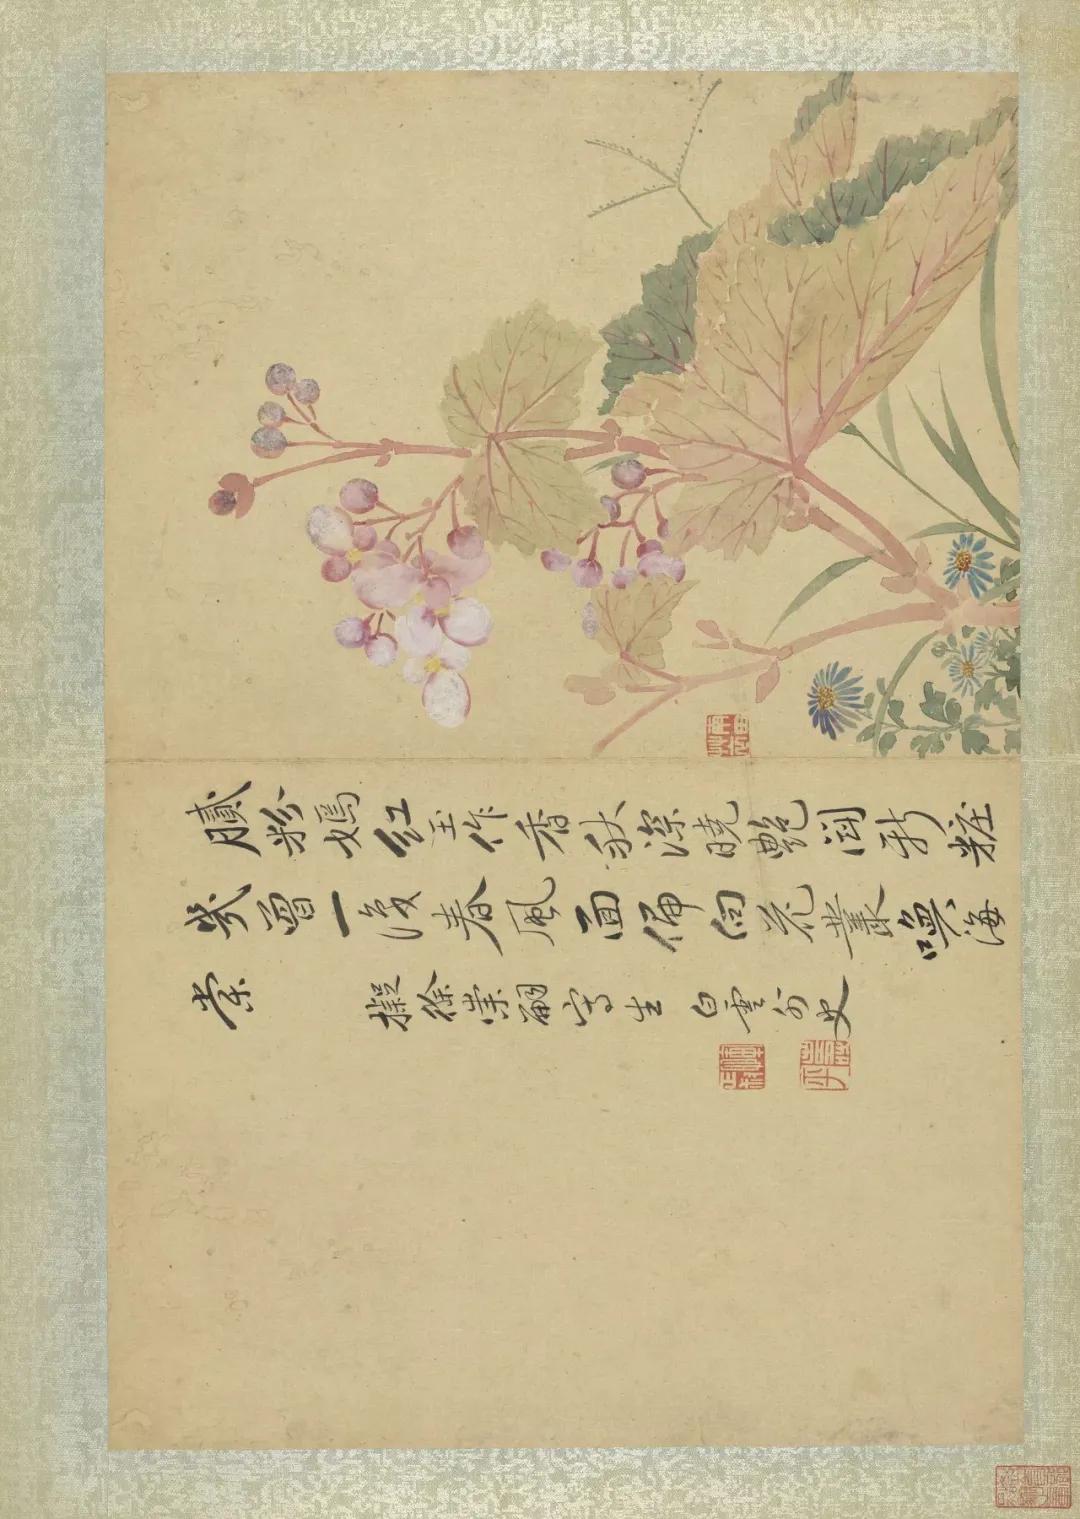 膩粉嫣紅玉作香秋深曉艷潤新粧
幾曾一春風面偏向花叢喚海
棠
擬徐崇嗣寫生 白雲外史